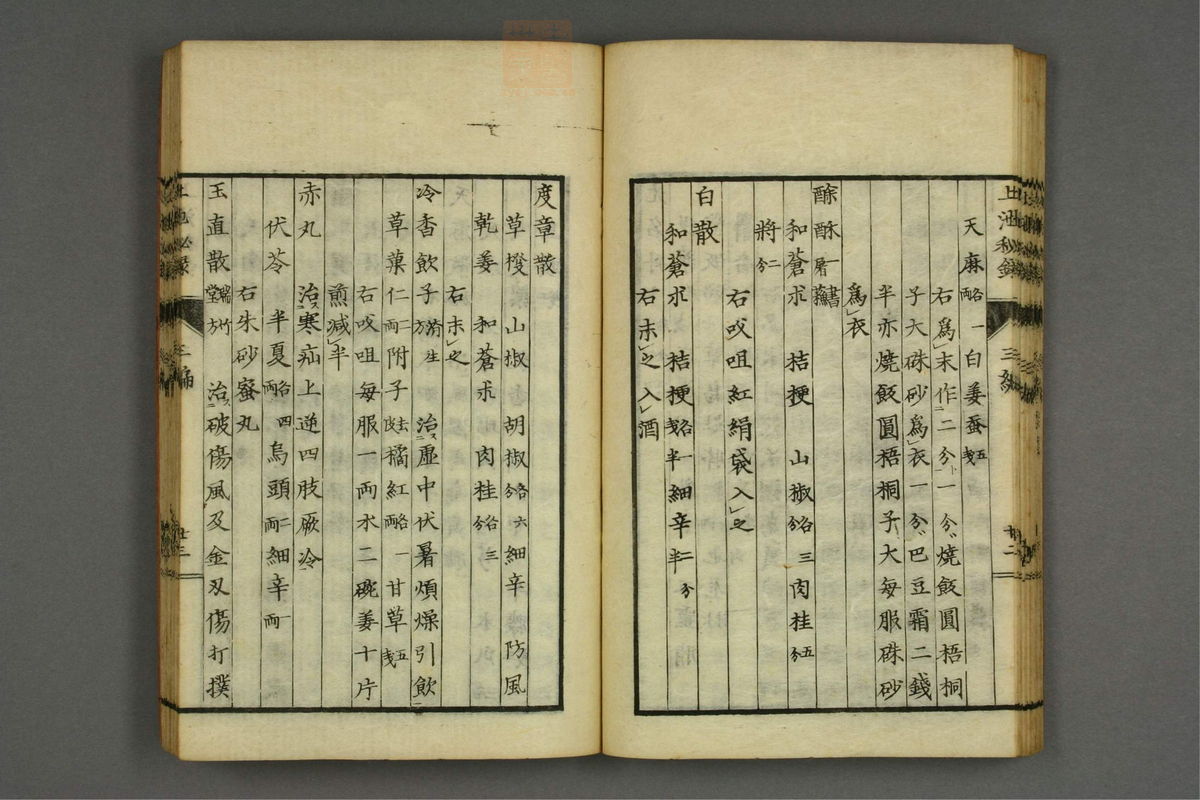 天麻 各一両 白姜蚕 五戔
右為末作二分一分燒飯圓梧桐
子大硃砂為衣一分巴豆霜二錢
半亦燒飯圓梧桐子大每服硃砂
為衣
酴酥 屠蘇
和蒼朮 桔梗 山椒 各三分 肉桂 五分
将 二分
右㕮咀紅絹袋入之
白散
和蒼朮 桔梗 各一戔半 細辛 二分半
右末之入酒
上池秘録 三編 廿二
度章散
草撥 山椒 胡椒 各六分 細辛 防風
乾姜 和蒼朮 肉桂 各三分
右末之
冷香飲子 済生方 治虛中伏暑煩燥引飲
草菓仁 二両 附子 橘紅 各一両 甘草 五戔
右㕮咀每服一両水二碗姜十片
煎減半
赤丸 治寒疝上逆四肢厥冷
伏苓 半夏 各四両 烏頭 二両 細辛 一両
右朱砂蜜丸
玉直散 瑞竹堂方 治破傷風及金刄傷打撲
三編 廿三